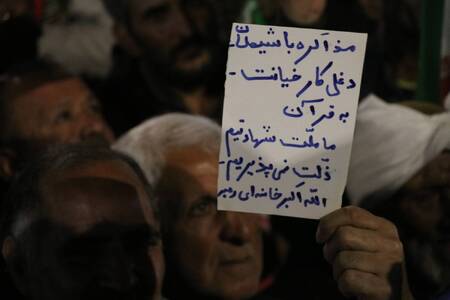 مذاکره با شیطان
دغلی کار خیانت -
به قرآن
ما ملّت شهادتیم
ذلّت نمی پذیریم -
الله اکبر خامنه ای رهبر